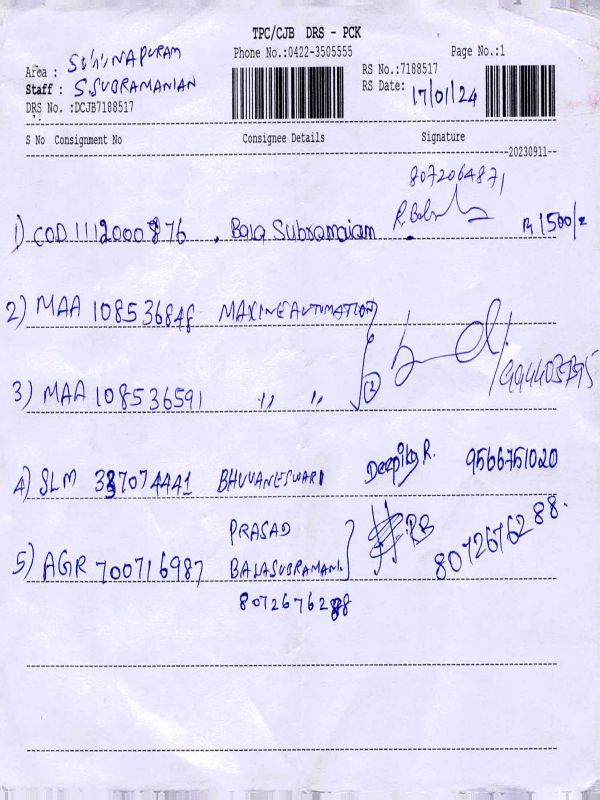 TPC/CJB DRS - PCK
Phone No.:0422-3505555 Page No.:1
Area :
Staff : S.SUBRAMANIAN
RS No.:7188517
RS Date: 17/01/24
DRS No. :DCJB7188517
S No Consignment No Consignee Details Signature
20230911
8072064871
1) COD 1112000876 Bala Subramaiam 1500/-
2) MAA 108536848 MAXINE AUTOMATION
3) MAA 108536591 " " (2)
4) SLM 337074441 BHUVANESWARI Deepika R. 9566751020
PRASAD
5) AGR 700716987 BALASUBRAMANI. RB 8072676288.
8072676288